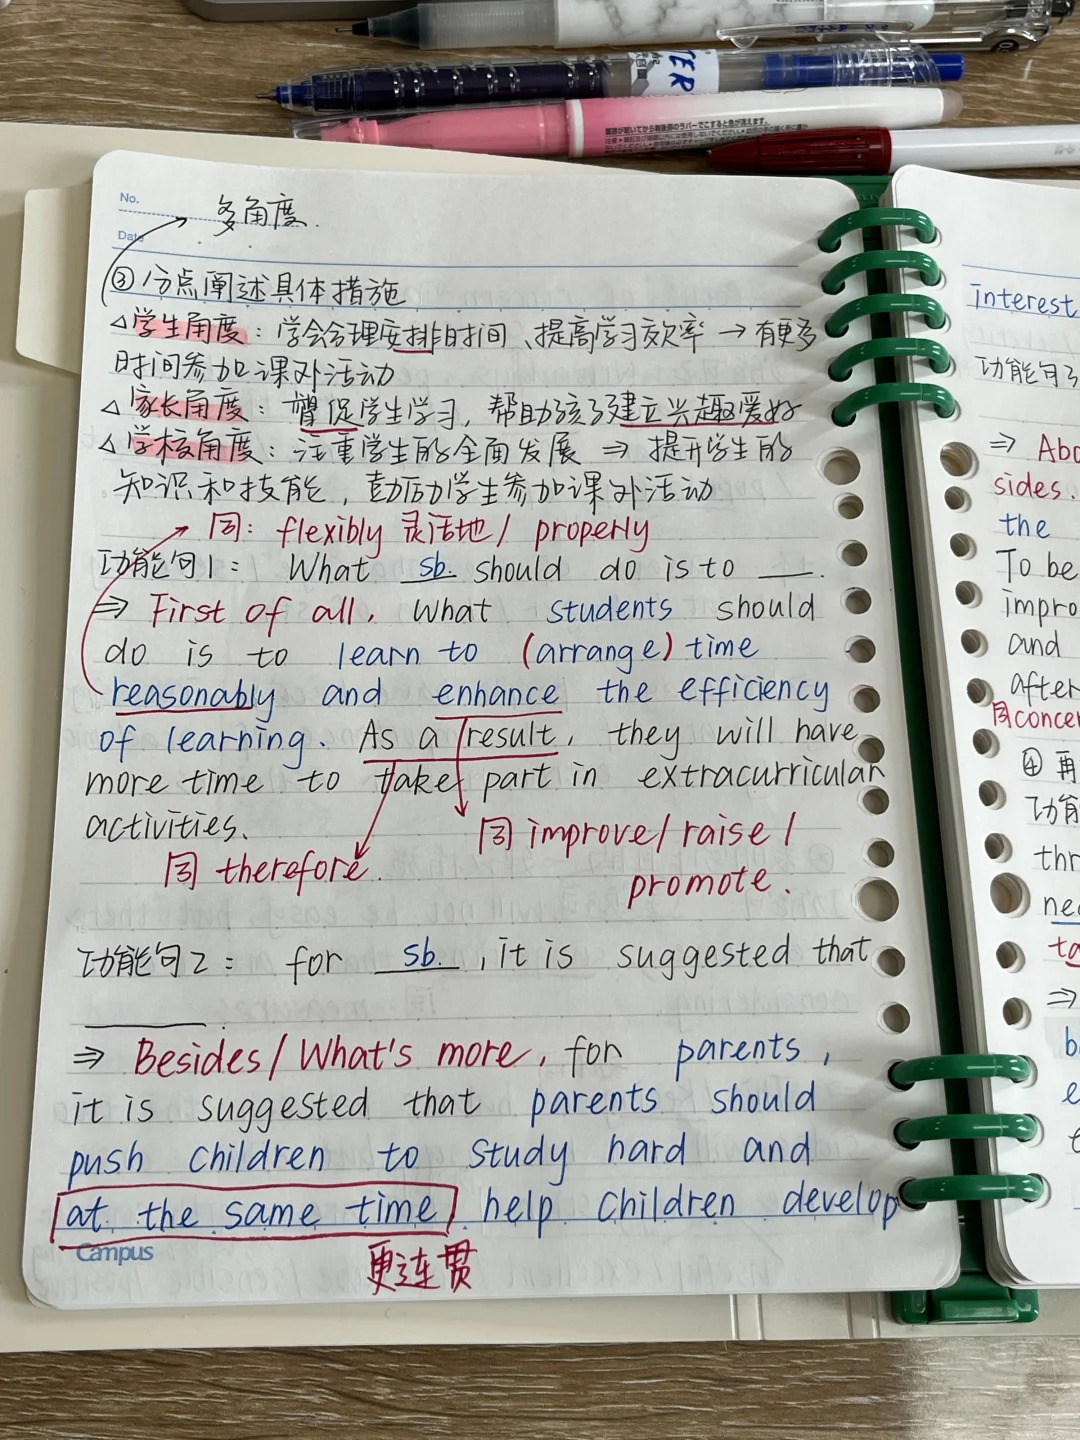 No.
多角度.
Date
③分点阐述具体措施
△学生角度：学会合理安排时间、提高学习效率 → 有更多
时间参加课外活动
△家长角度：督促学生学习，帮助孩子建立兴趣爱好
△学校角度：注重学生的全面发展 ⇒ 提升学生的
知识和技能，鼓励学生参加课外活动
同：flexibly 灵活地/ properly
功能句1：What sb. should do is to ___.
⇒ First of all, what students should
do is to learn to (arrange) time
reasonably and enhance the efficiency
of learning. As a result, they will have
more time to take part in extracurricular
activities.
同 improve/ raise /
同 therefore.
promote.
功能句2：for sb. , it is suggested that
___.
⇒ Besides/ What's more, for parents,
it is suggested that parents should
push children to study hard and
at the same time help children develop
Campus
更连贯
interest
功能句3
⇒ Abo
sides.
the
To be
impro
and
after
同concer
④再
功能
thr
nec
ta
⇒
b
e
t
TER